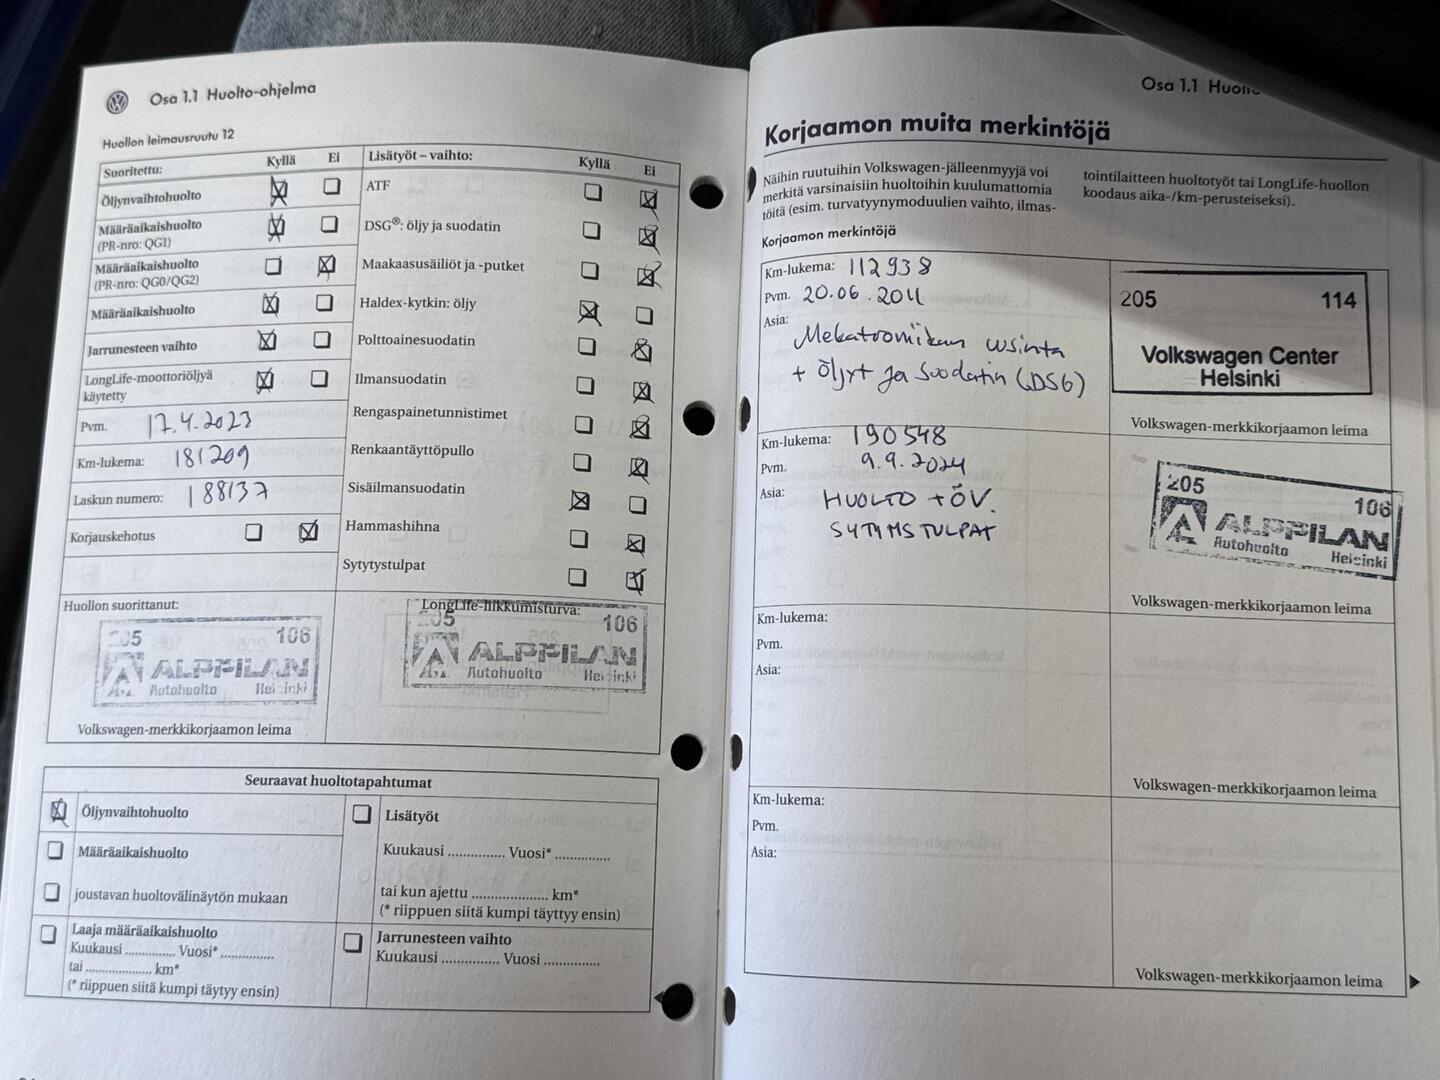 Osa 1.1 Huolto-ohjelma
Huollon leimausruutu 12
Suoritettu: Kyllä Ei
Öljynvaihtohuolto
Määräaikaishuolto
(PR-nro: QG1)
Määräaikaishuolto
(PR-nro: QG0/QG2)
Määräaikaishuolto
Jarrunesteen vaihto
LongLife-moottoriöljyä
käytetty
Pvm. 17.4.2023
Km-lukema: 181209
Laskun numero: 188137
Korjauskehotus
Lisätyöt – vaihto: Kyllä Ei
ATF
DSG®: öljy ja suodatin
Maakaasusäiliöt ja -putket
Haldex-kytkin: öljy
Polttoainesuodatin
Ilmansuodatin
Rengaspainetunnistimet
Renkaantäyttöpullo
Sisäilmansuodatin
Hammashihna
Sytytystulpat
Huollon suorittanut:
205 106
ALPPILAN
Autohuolto Helsinki
Volkswagen-merkkikorjaamon leima
LongLife-liikkumisturva:
205 106
ALPPILAN
Autohuolto Helsinki
Seuraavat huoltotapahtumat
Öljynvaihtohuolto
Määräaikaishuolto
joustavan huoltovälinäytön mukaan
Laaja määräaikaishuolto
Kuukausi ............... Vuosi* ...............
tai .................... km*
(* riippuen siitä kumpi täytyy ensin)
Lisätyöt
Kuukausi ............... Vuosi* ...............
tai kun ajettu .................... km*
(* riippuen siitä kumpi täyttyy ensin)
Jarrunesteen vaihto
Kuukausi ............... Vuosi ...............
Osa 1.1
Korjaamon muita merkintöjä
Näihin ruutuihin Volkswagen-jälleenmyyjä voi
merkitä varsinaisiin huoltoihin kuulumattomia
töitä (esim. turvatyynymoduulien vaihto, ilmas-
tointilaitteen huoltotyöt tai LongLife-huollon
koodaus aika-/km-perusteiseksi).
Korjaamon merkintöjä
Km-lukema: 112938
Pvm. 20.06.2011
Asia: Mekatroniikan uusinta
+ Öljyt ja Suodatin (DSG)
205 114
Volkswagen Center
Helsinki
Volkswagen-merkkikorjaamon leima
Km-lukema: 190548
Pvm. 9.9.2024
Asia: HUOLTO + ÖV.
SYTYMSTULPAT
205 106
ALPPILAN
Autohuolto Helsinki
Volkswagen-merkkikorjaamon leima
Km-lukema:
Pvm.
Asia:
Volkswagen-merkkikorjaamon leima
Km-lukema:
Pvm.
Asia:
Volkswagen-merkkikorjaamon leima